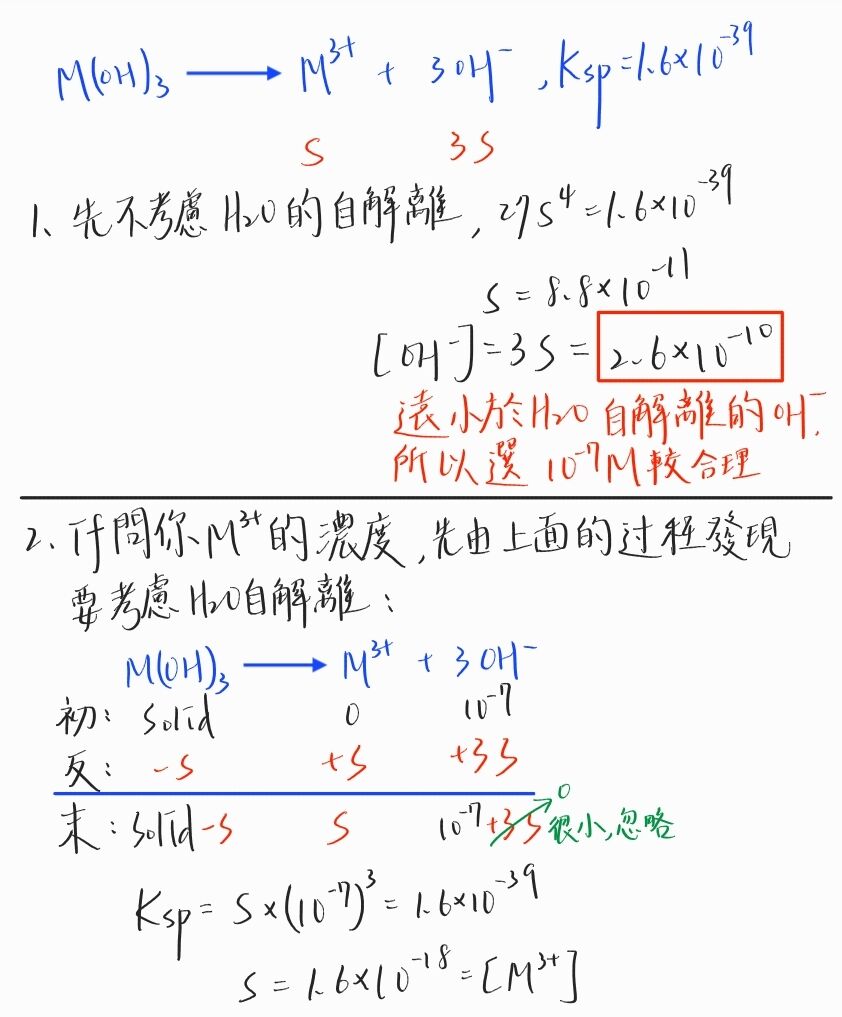 M(OH)₃ ⟶ M³⁺ + 3OH⁻ , Ksp=1.6×10⁻³⁹
S 3S
1、先不考慮H₂O的自解離, 27S⁴=1.6×10⁻³⁹
S = 8.8×10⁻¹¹
[OH⁻]=3S= 2.6×10⁻¹⁰
遠小於H₂O自解離的OH⁻,
所以選 10⁻⁷M較合理
2、If問你M³⁺的濃度,先由上面的过程發現
要考慮H₂O自解離:
M(OH)₃ ⟶ M³⁺ + 3OH⁻
初: solid 0 10⁻⁷
反: -S +S +3S
末: solid-S S 10⁻⁷+3S 0 很小,忽略
Ksp= S×(10⁻⁷)³=1.6×10⁻³⁹
S = 1.6×10⁻¹⁸=[M³⁺]